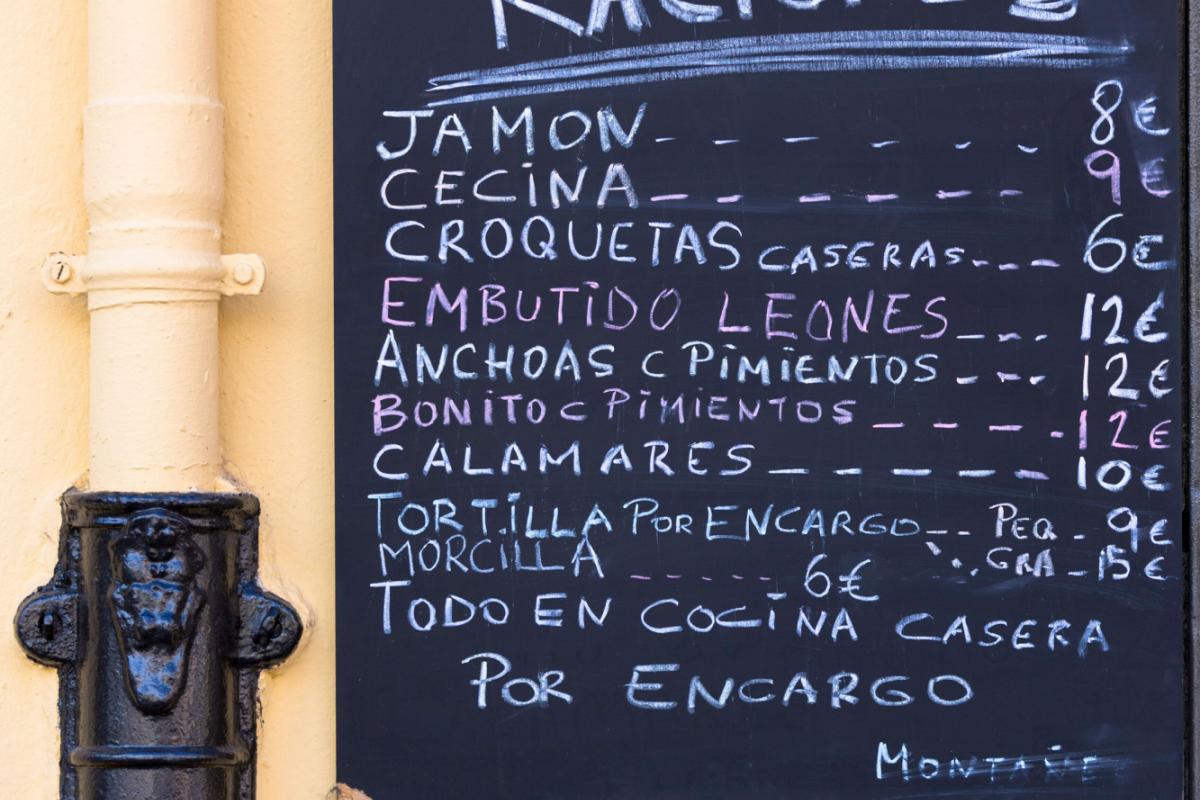 RACIONES
JAMON - - - - - - 8€
CECINA - - - - - - 9€
CROQUETAS CASERAS - - - 6€
EMBUTIDO LEONES - - - 12€
ANCHOAS C PIMIENTOS - - - 12€
BONITO C PIMIENTOS - - - - - 12€
CALAMARES - - - - - 10€
TORTILLA POR ENCARGO - - PEQ - 9€
GRA - 15€
MORCILLA - - - - - - 6€
TODO EN COCINA CASERA
POR ENCARGO